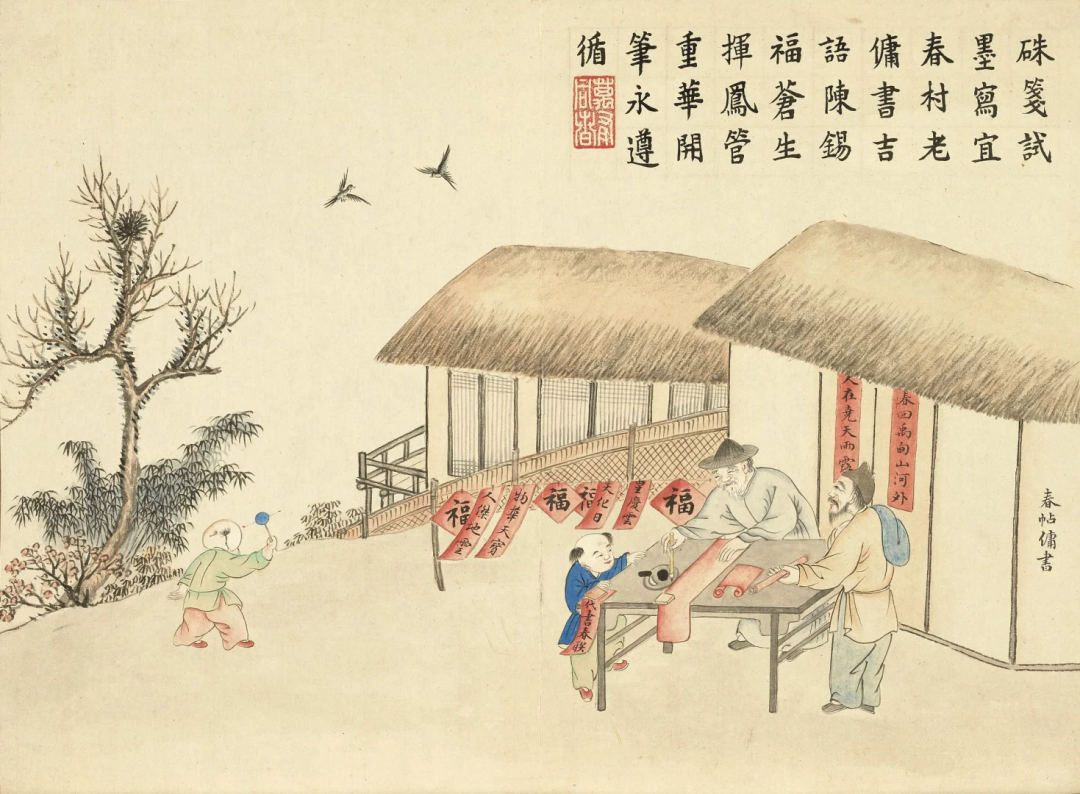 硃箋試
墨寫宜
春村老
傭書吉
語陳錫
福蒼生
揮鳳管
重華開
筆永遵
循
春帖傭書
春回禹甸山河外
人在堯天雨露
福
星慶雲
天化日
福
福
物華天寶
人傑地靈
福
代書春聯